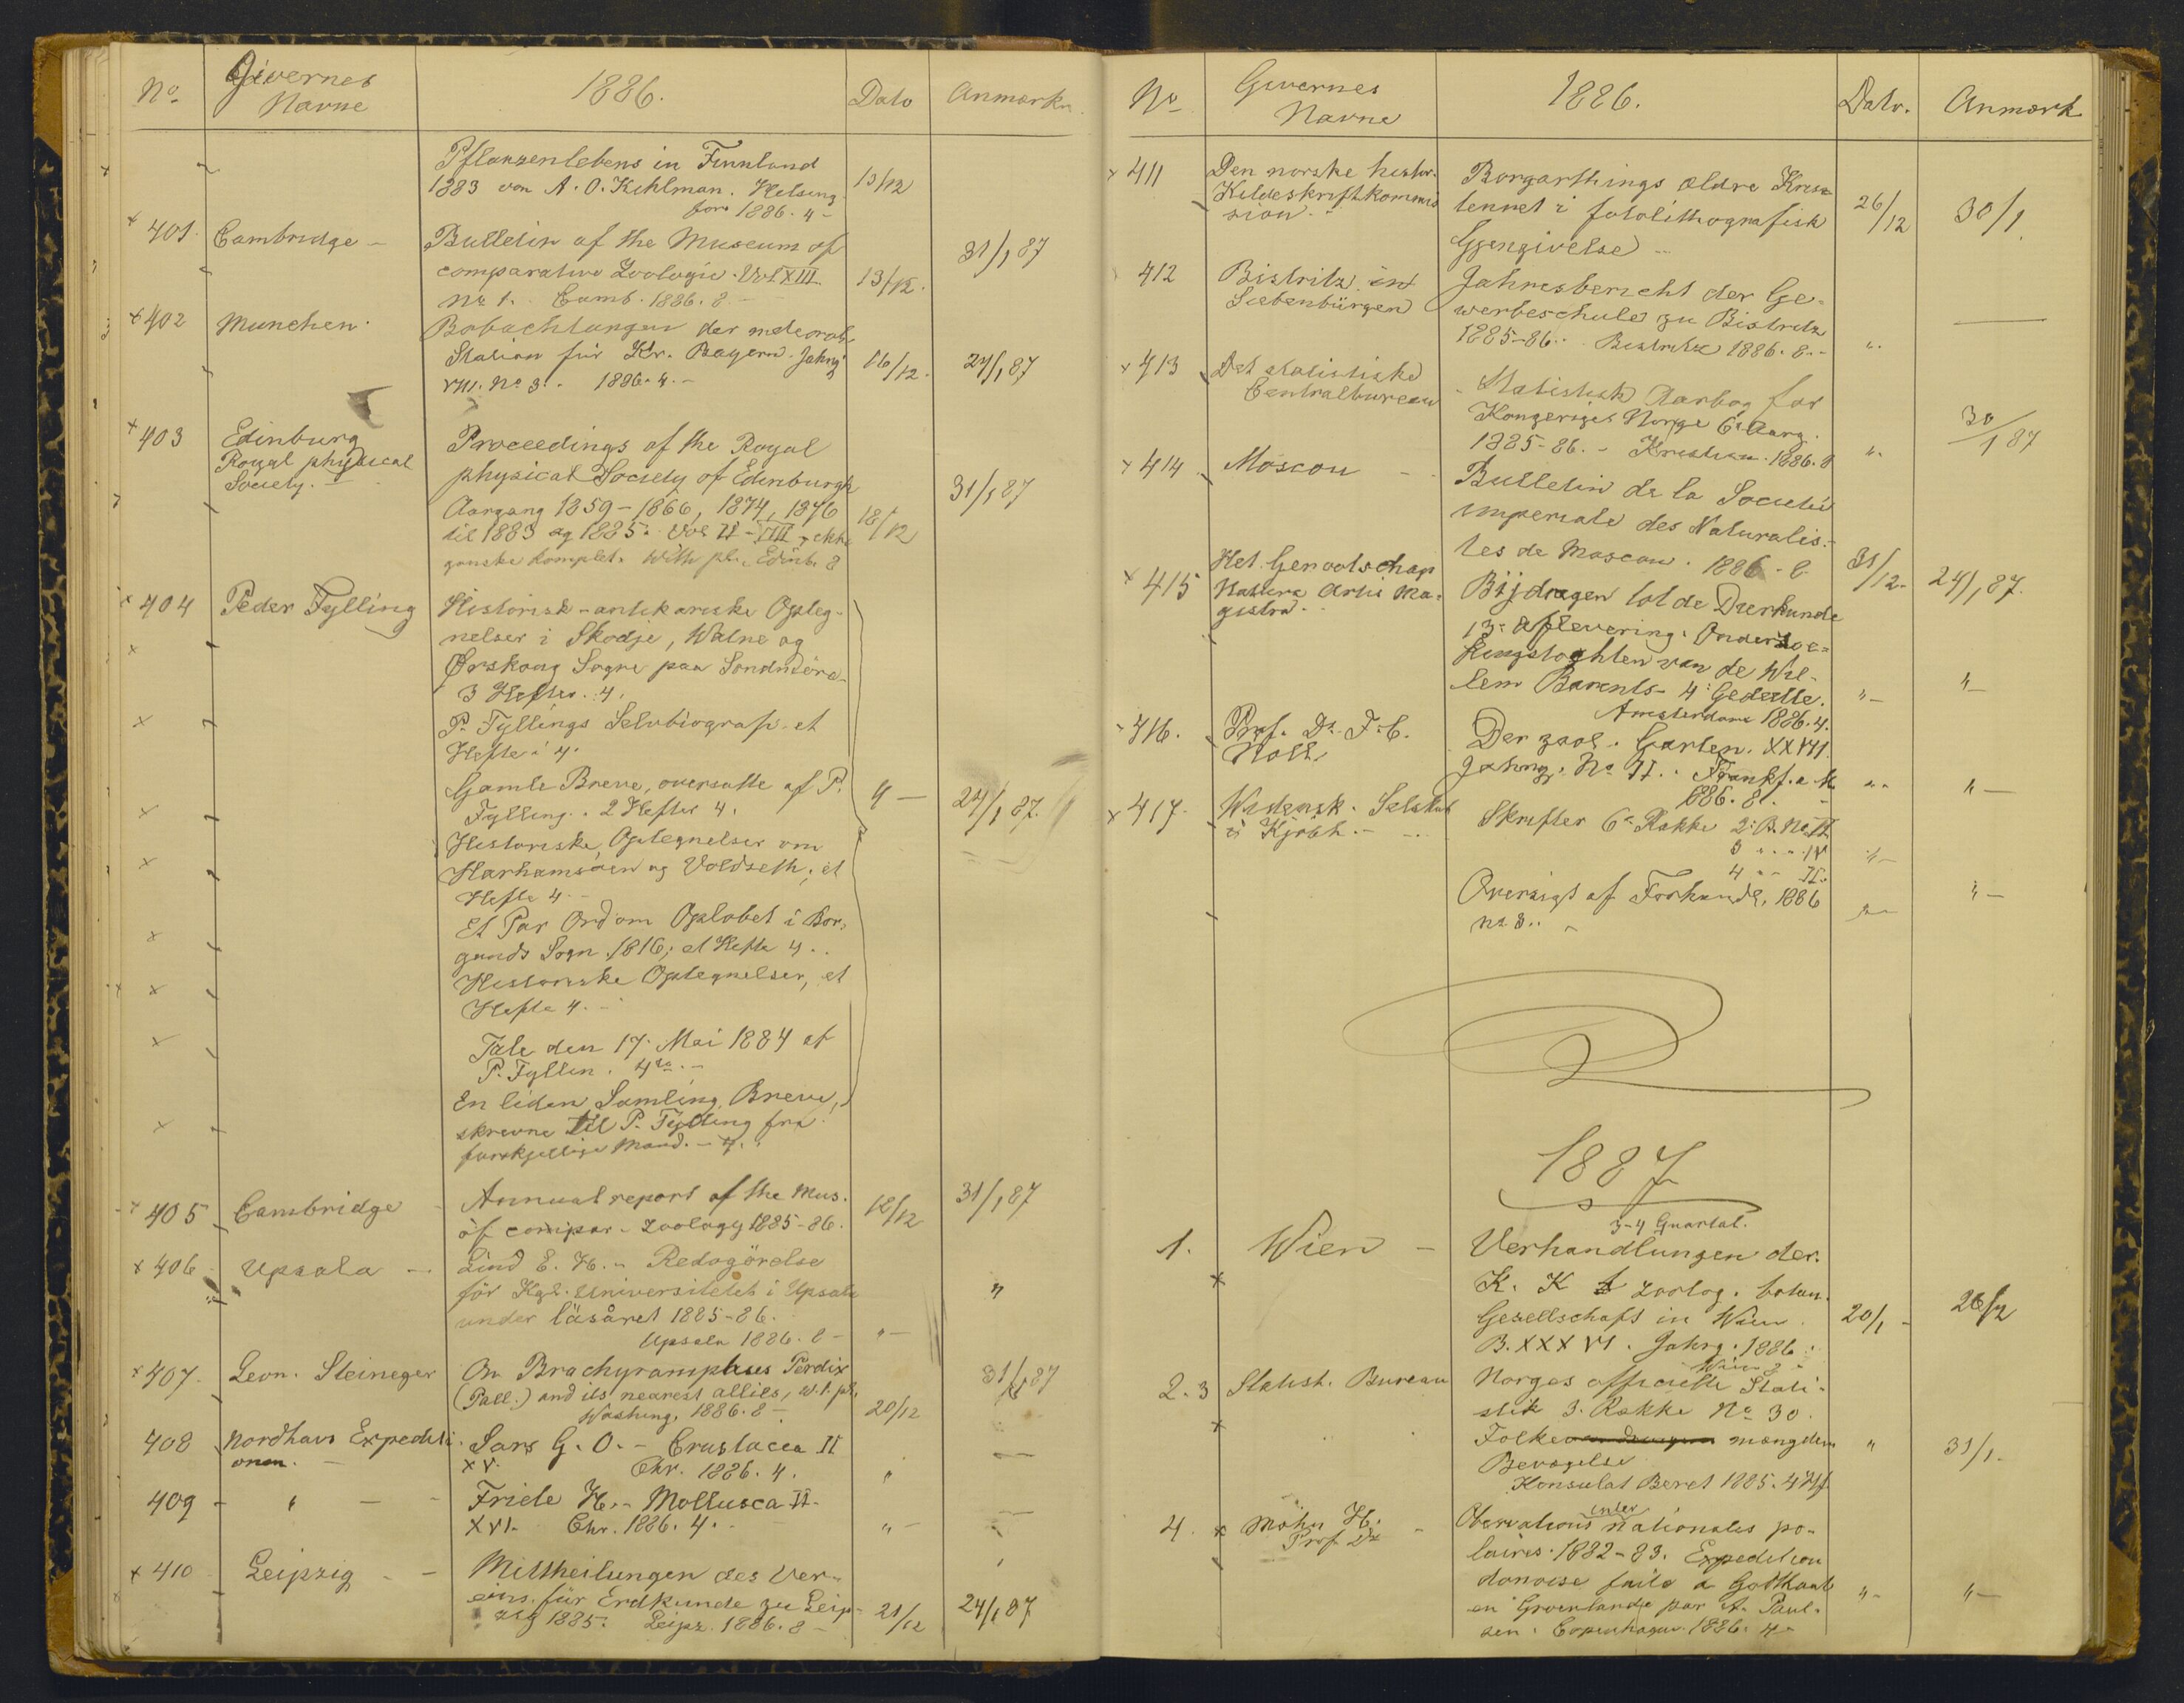 No Givernes Navne 1886. Dato Anmærkn.
Pflanzenlebens in Finnland
1883 von A. O. Kihlman. Helsing- 13/12
fors 1886. 4 -
401. Cambridge - Bulletin of the Museum of
comparative Zoologie. Vol XIII. 13/12. 31/1 87
No 1. Camb. 1886. 8 -
402 München. Beobachtungen der meteorol.
Station für Kr. Bayern. Jahrg. 16/12. 24/1 87
VIII. No 3. 1886. 4. -
403 Edinburg Proceedings of the Royal
Royal physical physical Society of Edinburgh
Society. - Aargang 1859 - 1866, 1874, 1876 18/12 31/1 87
til 1883 og 1885. Vol II - VIII, ikke
ganske komplet. With pl. Edinb. 8
404 Peder Fylling Historisk-antikariske Opteg-
nelser i Skodje, Vatne og
Ørskoug Sogne paa Søndmøre -
3 Hefter. 4.
P. Fyllings Selvbiografi. et
Hefte i 4.
Gamle Breve, oversatte af P. " - 24/1 87.
Fylling. 2 Hefter 4.
Historiske Optegnelser om
Harhamsøen og Voldseth; et
Hefte 4 -
Et Par Ord om Opløbet i Bor-
gunds Sogn 1816; et Hefte 4.
Historiske Optegnelser, et
Hefte 4. -
Tale den 17. Mai 1884 af
P. Fyllin. 4to. -
En liden Samling Breve,
skrevne til P. Fylling fra
forskjellige Mænd. - 4.
405 Cambridge - Annual report of the Mus. 18/12 31/1 87
of compar. zoology 1885-86.
406 Upsala - Lind E. H. - Redogörelse
för Kgl. Universitetet i Upsala "
under läsåret 1885-86.
Upsala 1886. 8 - " -
407. Leon. Steineger On Brachyramphus Perdix 31/1 87
(Pall.) and its nearest allies, w. 1. pl.
Washing. 1886. 8 - 20/12
408 Nordhavs Expediti- Sars G. O. - Crustacea II
onen. - XV. Chr. 1886. 4. " -
409 - " - - Friele H. - Mollusca II -
XVI. Chr. 1886. 4. - " - -
410 Leipzig - - Mittheilungen des Ver-
eins für Erdkunde zu Leip- 21/12 24/1 87
zig 1885. Leipz. 1886. 8 -
No Givernes Navne 1886. Dato. Anmærk.
411 Den norske histor. Borgarthings ældre Kris-
Kildeskriftkommis- tenret i fotolithografisk 26/12 30/1
sion. Gjengivelse -
412 Bistritz in Jahresbericht der Ge-
Siebenbürgen werbeschule zu Bistritz -
1885-86. Bistritz 1886. 8. - "
413 Det statistiske Statistisk Aarbog for
Centralbureau Kongeriget Norge 6te Aarg. 30/1 87
1885-86. - Kristian. 1886. 8 "
414 Moscou - Bulletin de la Société
imperiale des Naturalis-
tes de Moscou. 1886 - 8. 31/12 - 24/1 87.
415 Het Genootschap Bijdragen tot de Dierkunde
Natura Artis Ma- 13e Aflevering. Onderzoe-
gistra. kingstochten van de Wil-
lem Barents - 4e Gedeelte. " - " -
Amsterdam 1886. 4.
416. Prof. Dr. F. C. Der zool. Garten. XXVII
Noll. Jahrg. No II. Frankf. a M. " - " -
1886. 8. -
417. Vidensk. Selskab Skrifter 6te Række 2. B. No II
i Kjøbh. - 3 " " " IV " -
4 " " II.
Oversigt af Forhandl. 1886 " - " -
no 3.
1887
3-4 Quartal.
1. Wien - Verhandlungen der
K. K zoolog. botan.
Gesellschaft in Wien. 20/1 - 26/2
B. XXXVI. Jahrg. 1886.
Wien 8 -
2. 3 Statist. Bureau Norges officielle Stati-
stik 3. Række No 30.
Folkemængdens " 31/1.
Bevægelse
Konsulat Beret 1885. 4 Hf.
4. Mohn H. Observations internationales po-
Prof. Dr. laires. 1882-83. Expedition
danoise faite a Godthaab
en Groenlande par A. Paul- " - " -
sen. Copenhague. 1886. 4 -